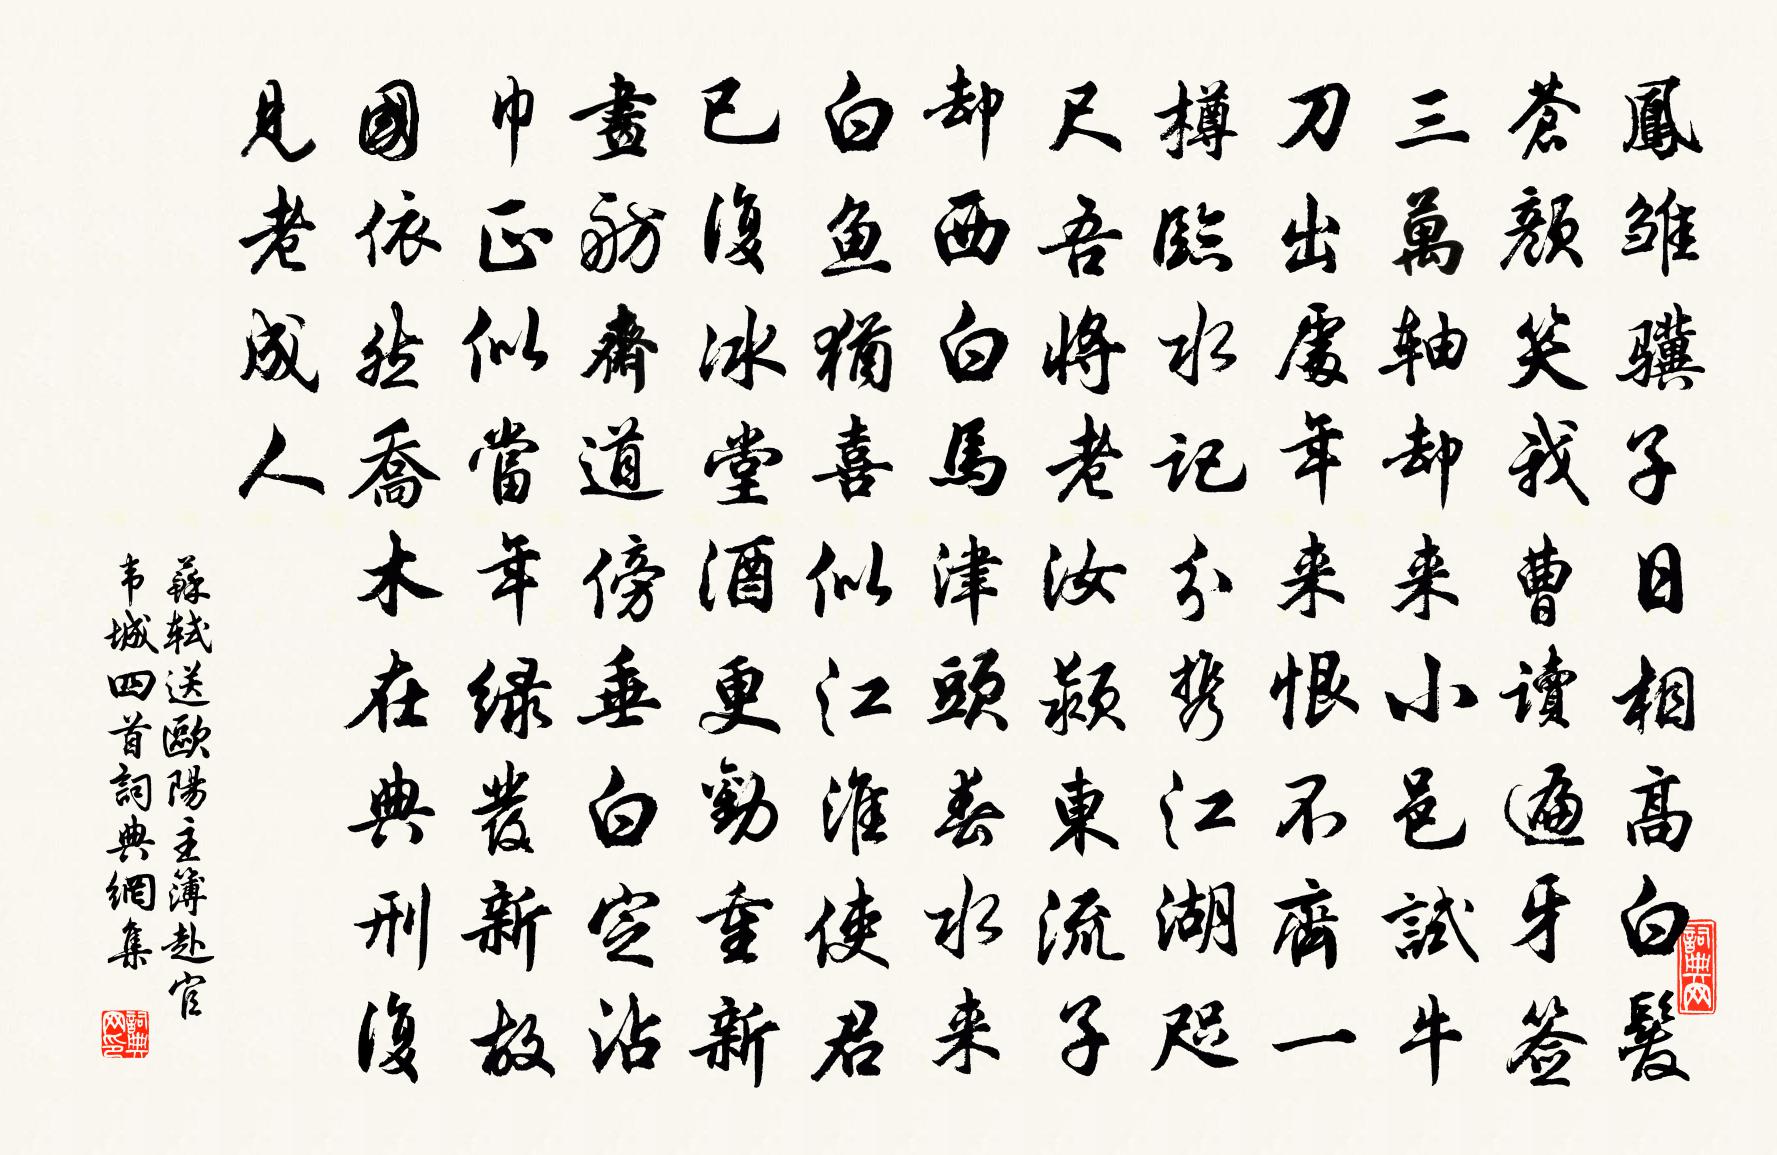 鳳雛骥子日相高白髮
蒼顏笑我曹讀遍牙签
三萬軸却来小邑試牛
刀出處年来恨不齊一
樽臨水記分携江湖咫
尺吾將老汝潁東流子
却西白馬津頭春水来
白鱼猶喜似江淮使君
已復冰堂酒更勸重新
畫舫齋道傍垂白定沾
巾正似當年绿發新故
國依然喬木在典刑復
見老成人
蘇軾送歐陽主簿赴官
韦城四首詞典網集
詞典网
詞典网印